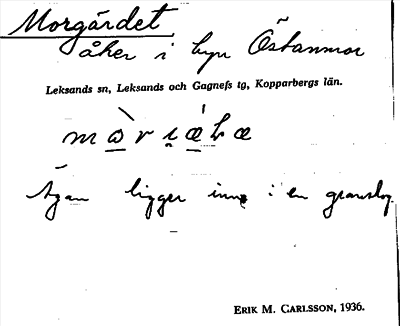 Morgärdet
åker i byn Östanmor
Leksands sn, Leksands och Gagnefs tg, Kopparbergs län.
ligger inne i en granskog.
ERIK M. CARLSSON, 1936.